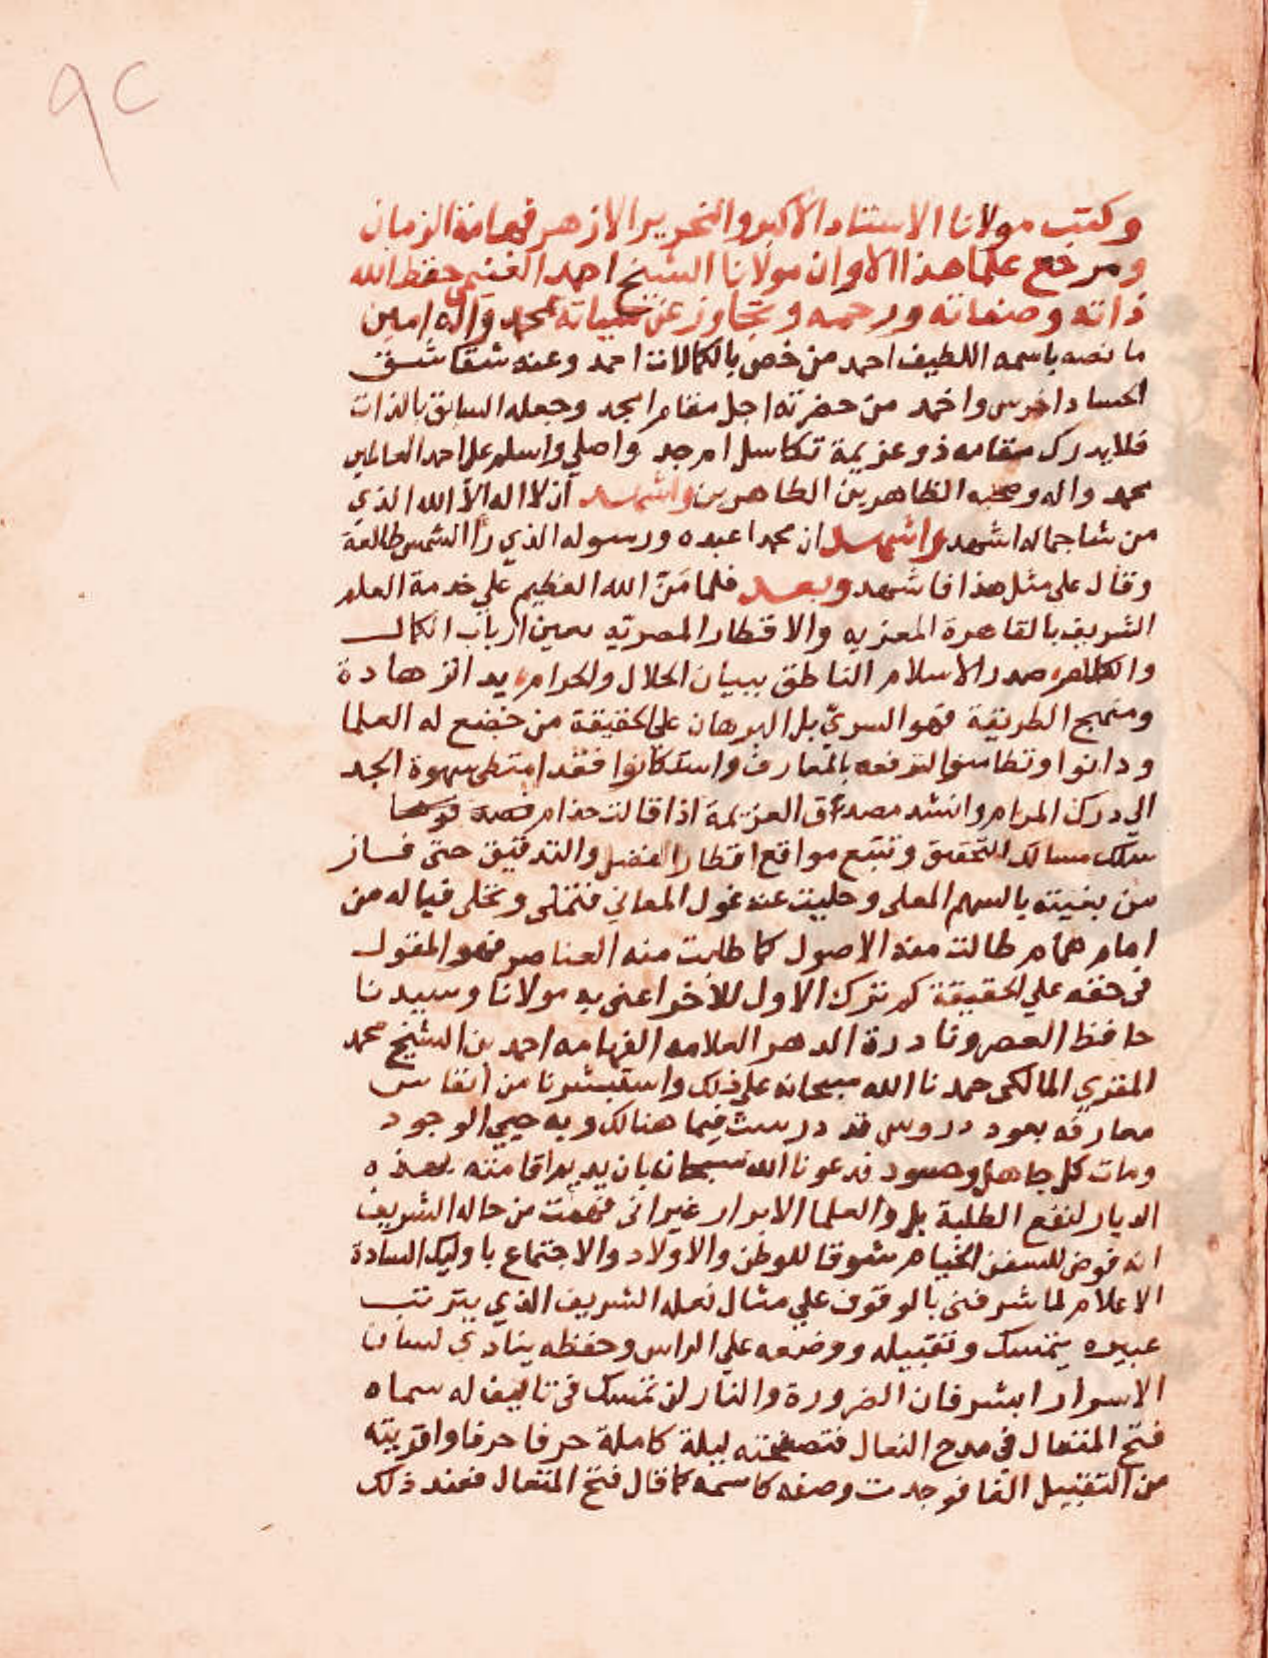 ٩٢
وكتب مولانا الاستاد الاكبر والنحرير الازهر فهامة الزمان
ومرجع علما هذا الاوان مولانا الشيخ احمد الغنيمي حفظ الله
ذاته وصفاته ورحمه وتجاوز عن سياته بمحمد وآله امين
ما نصه باسمه اللطيف احمد من خص بالكمالات احمد وعنه شقاشق
الحساد اخرس واخمد من حضرته اجل مقام امجد وجعله السابق بالذات
فلا يدرك مقامه ذو عزيمة تكاسل ام جد واصلي واسلم على احمد العالمين
محمد واله وصحبه الظاهرين الطاهرين واشهد أن لا اله الا الله الذي
من شا جماله اشهد واشهد ان محمدا عبده ورسوله الذي رأا الشمس طالعة
وقال على مثل هذا فاشهد وبعد فلما مَنّ الله العظيم علي خدمة العلم
الشريف بالقاهرة المعزيه والاقطار المصريّه بعين ارباب الكمال
والكلام صدر الاسلام الناطق ببيان الحلال والحرام يد الزهادة
ومنهج الطريقة فهو السريّ بل البرهان على الحقيقة من خضع له العلما
ودانوا وتطامنوا لترفعه بالمعارف واستكانوا فقد امتطى سهوة الجد
الى درك المرام وانشد مصدق العزيمة اذا قالت حذام
سلك مسالك التحقيق وتتبع مواقع اقطار الفضل والتدقيق حتى فاز
من بغيته بالسهم المعلى وجليت عنده غول المعاني فتملى وتحلى فياله من
امام همام طالت منه الاصول كما طابت منه العناصر فهو المقول
في حقه علي الحقيقة كم ترك الاول للآخر اعنى به مولانا وسيدنا
حافظ العصر ونادرة الدهر العلامه الفهامه احمد بن الشيخ محمد
المقري المالكى حمدنا الله سبحانه على ذلك واستبشرنا من انفاس
معارفه بعود دروس قد درست فيما هنالك وبه حيي الوجود
ومات كل جاهل وحسود فدعونا الله سبحانه بان يديم اقامته بهذه
الديار لنفع الطلبة بل والعلما الابرار غير انى فهمت من حاله الشريف
انه قوض للسفن الخيام شوقا للوطن والاولاد والاجتماع باوليك السادة
الاعلام لما شرفنى بالوقوف علي مثال نعله الشريف الذي يترتب
عبيره بتمسك وتقبيله ووضعه علي الراس وحفظه ينادي لسان
الاسرار ابشر فان الضرورة والنار لن تمسك فى تاليف له سماه
فتح المتعال في مدح النعال فتصفحته ليلة كاملة حرفا حرفا واقريته
من التقبيل الفا فوجدت وصفه كاسمه كما قال فتح المتعال فعند ذلك